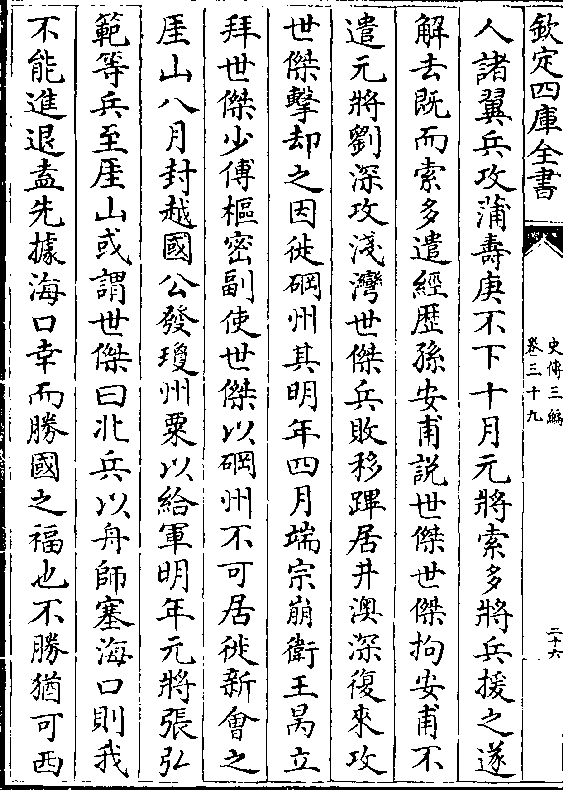 欽定四庫全書
史傳三編
卷三十九
二十六
人諸翼兵攻蒲壽庚不下十月元將索多將兵援之遂
解去既而索多遣經歴孫安甫説世傑世傑拘安甫不
遣元將劉深攻淺灣世傑兵敗移蹕居井澳深復來攻
世傑擊却之因徙碙州其明年四月端宗崩衛王昺立
拜世傑少傅樞密副使世傑以碙州不可居徙新㑹之
厓山八月封越國公發瓊州粟以給軍明年元將張弘
範等兵至厓山或謂世傑曰北兵以舟師塞海口則我
不能進退盍先據海口幸而勝國之福也不勝猶可西